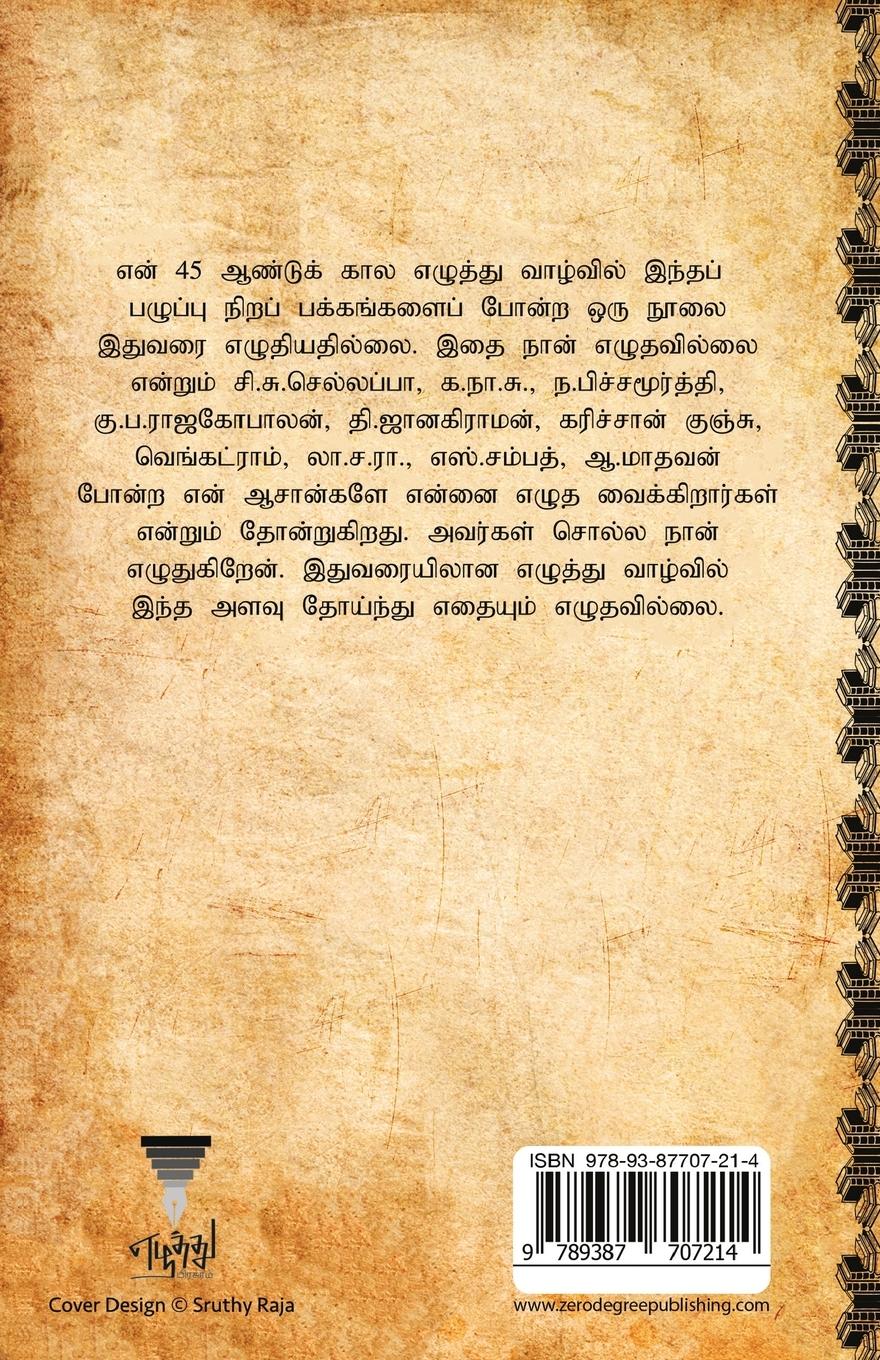 என் 45 ஆண்டுக் கால எழுத்து வாழ்வில் இந்தப்
பழுப்பு நிறப் பக்கங்களைப் போன்ற ஒரு நூலை
இதுவரை எழுதியதில்லை. இதை நான் எழுதவில்லை
என்றும் சி.சு.செல்லப்பா, க.நா.சு., ந.பிச்சமூர்த்தி,
கு.ப.ராஜகோபாலன், தி.ஜானகிராமன், கரிச்சான் குஞ்சு,
வெங்கட்ராம், லா.ச.ரா., எஸ்.சம்பத், ஆ.மாதவன்
போன்ற என் ஆசான்களே என்னை எழுத வைக்கிறார்கள்
என்றும் தோன்றுகிறது. அவர்கள் சொல்ல நான்
எழுதுகிறேன். இதுவரையிலான எழுத்து வாழ்வில்
இந்த அளவு தோய்ந்து எதையும் எழுதவில்லை.
எழுத்து
பிரசுரம்
Cover Design © Sruthy Raja
ISBN 978-93-87707-21-4
9 789387 707214
www.zerodegreepublishing.com